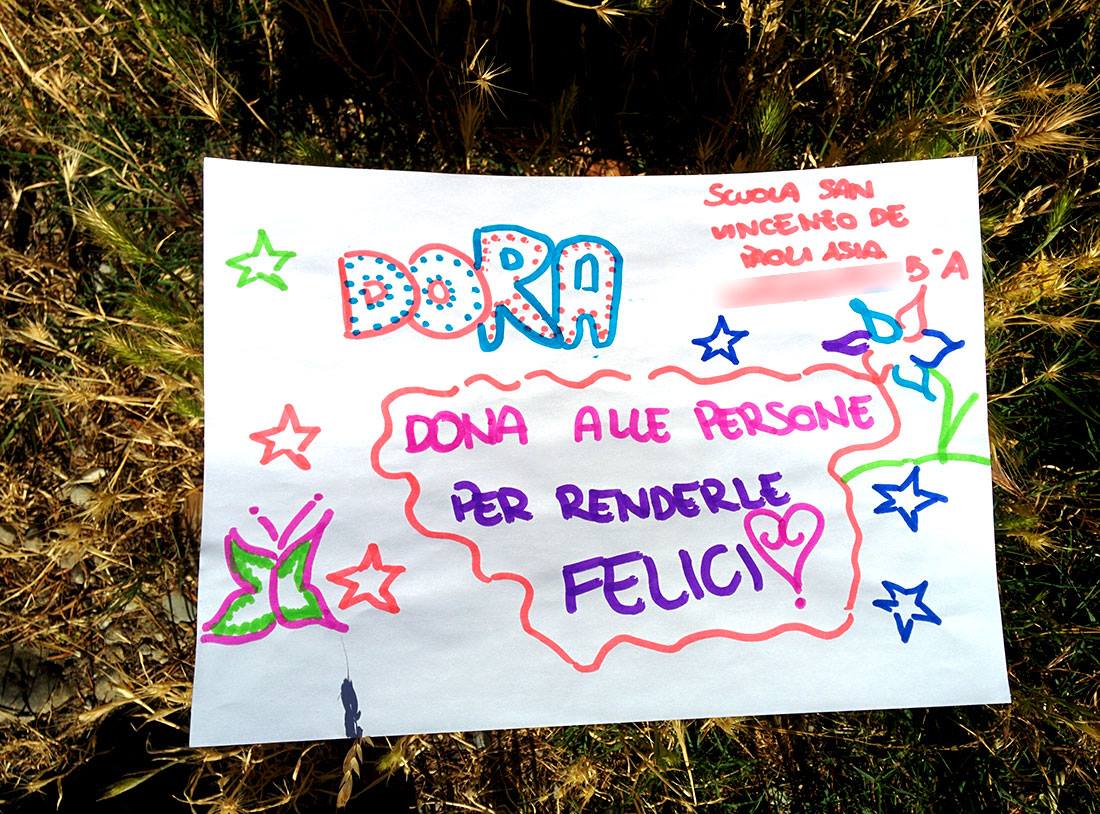 DORA
SCUOLA SAN
VINCENZO DE
PAOLI ASIA
B°A
DONA ALLE PERSONE
PER RENDERLE
FELICI